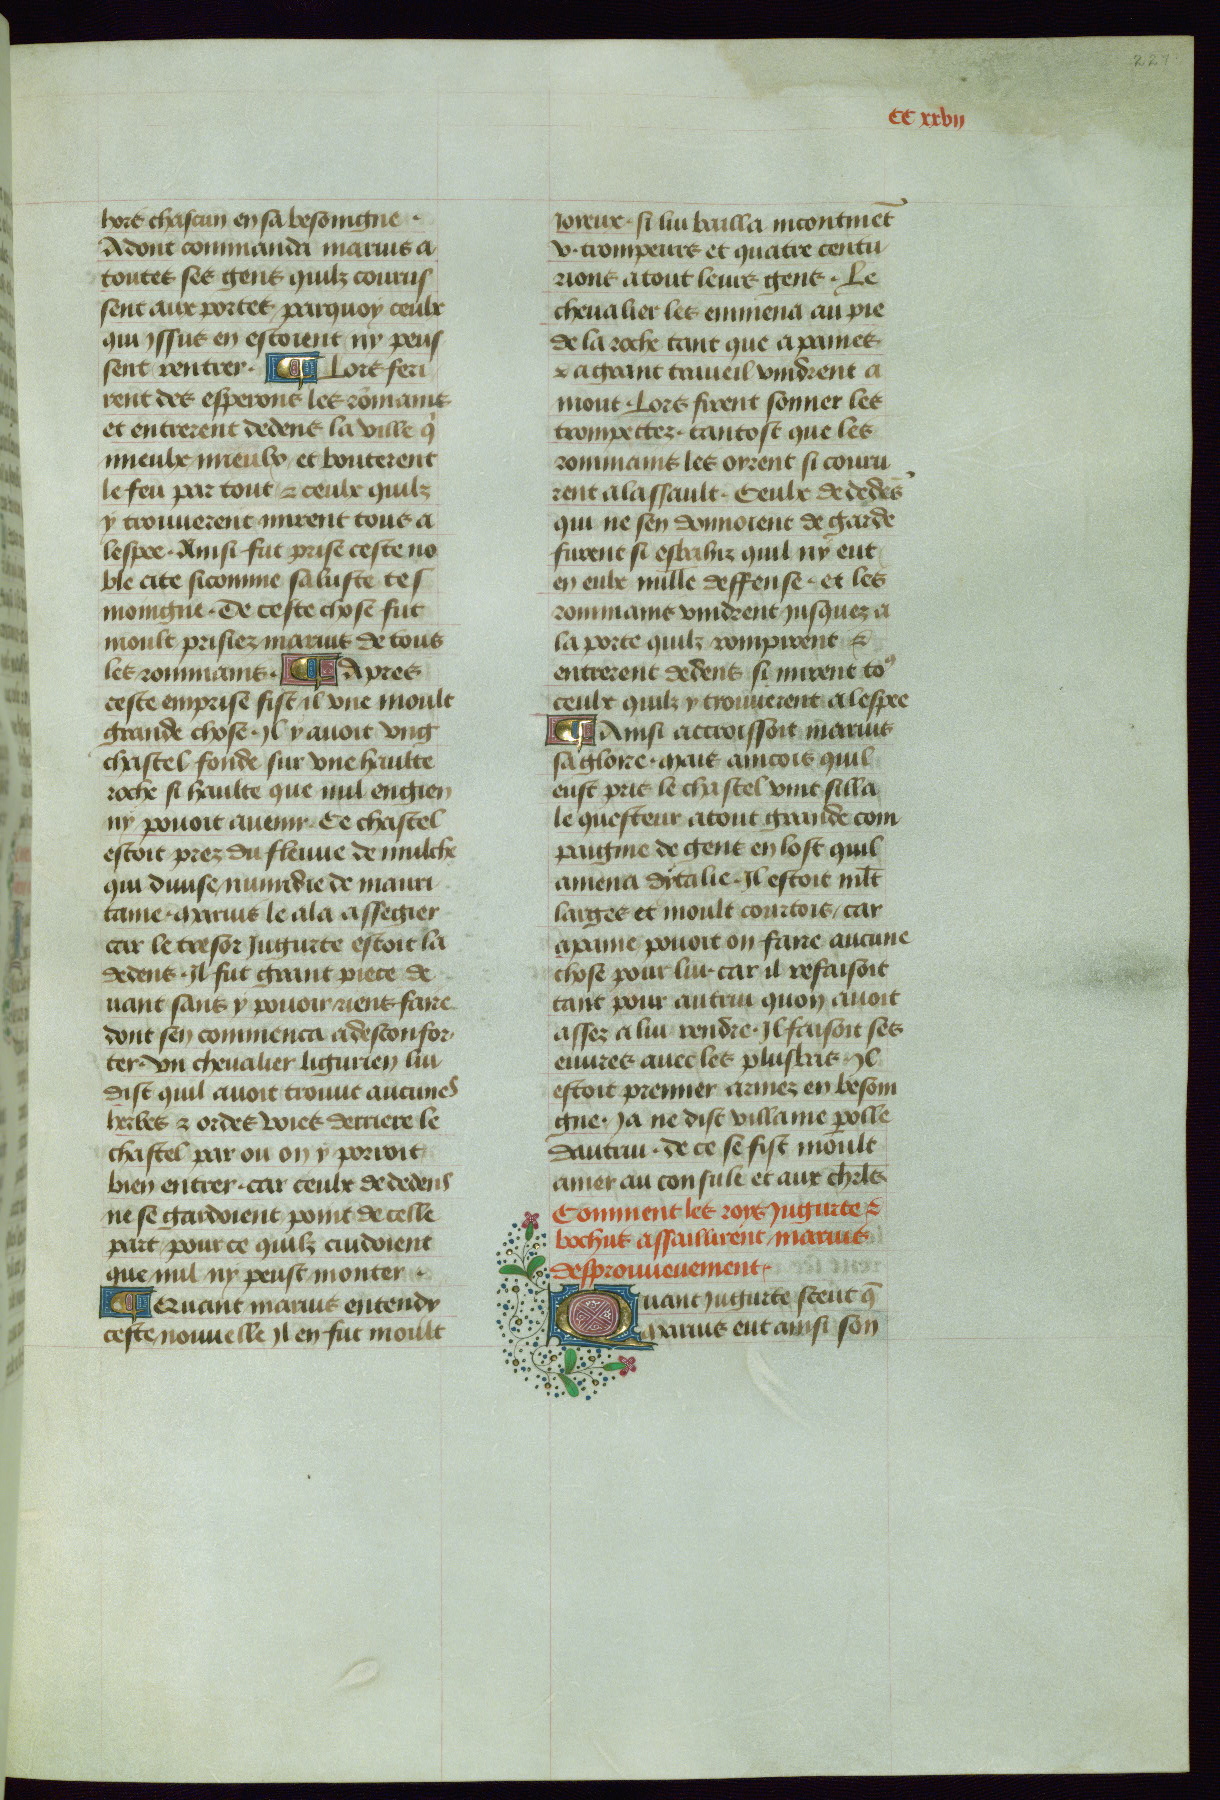 227
CC xxvii
hors chascun en sa besoingne .
Adont commanda marius a
toutes ses gens quilz courus
sent aux portes / parquoy ceulx
qui yssus en estoient ny peus
sent rentrer . Lors feri
rent des esperons les rommains
et entrerent dedens la ville qi
mieulx mieulx / et bouterent
le feu par tout / & ceulx quilz
y trouuerent mirent tous a
lespee . Ainsi fut prise ceste no
ble cite sicomme saluste tes
moingne . De ceste chose fut
moult prisiez marius de tous
les rommains . Apres
ceste emprise fist il vne moult
grande chose . Il y auoit vng
chastel fonde sur vne haulte
roche si haulte que nul engien
ny pouoit auenir . Ce chastel
estoit prez du fleuue de mulche
qui diuise / numidie de mauri
tame . marius le ala assegier
car le tresor Jugurte estoit la
dedens . Il fut grant piece de
uant sans y pouoir riens faire
dont sen commenca a desconfor
ter . Vn cheualier ligurien lui
dist quil auoit trouue aucunes
herbes & ordes voies derriere le
chastel par ou on y porroit
bien entrer . car ceulx de dedens
ne se gardoient point de celle
part / pour ce quilz cuidoient
que nul ny peust monter .
Quant marius entendy
ceste nouuelle Il en fut moult
Joyeux . si lui bailla incontinēt
v . trompeurs et quatre centu
rions a tout leurs gens . Le
cheualier les emmena au pie
de la roche tant que a paines
& a grant traueil vindrent a
mont . Lors firent sonner les
trompettez . tantost que les
rommains les oyrent si couru
rent a lassault . Ceulx de dedēs
qui ne sen donnoient de garde
furent si esbahiz quil ny eut
en eulx nulle deffense . et les
rommains vindrent jusquez a
la porte quilz rompirent &
entrerent dedens si mirent to9
ceulx quilz y trouuerent a lespee
Ainsi accroissoit marius
sa gloire . mais aincois quil
eust pris le chastel vint silla
le questeur atout grande com
paignie de gens en lost quil
amena dytalie . Il estoit mlt
larges et moult courtois / car
a paine pouoit on faire aucune
chose pour lui . car il refaisoit
tant pour autrui quon auoit
assez a lui rendre . Il faisoit ses
euures auec les plus bas . Il
estoit premier armez en besoin
gne . Ja ne dist villanie polle
dautrui . de ce se fist moult
amer au consule et aux chrls
Comment les roys Jugurte &
bochus assaillirent / marius
desprouueuement .
Quant Jugurte sceut q̄
marius eut ainsi son